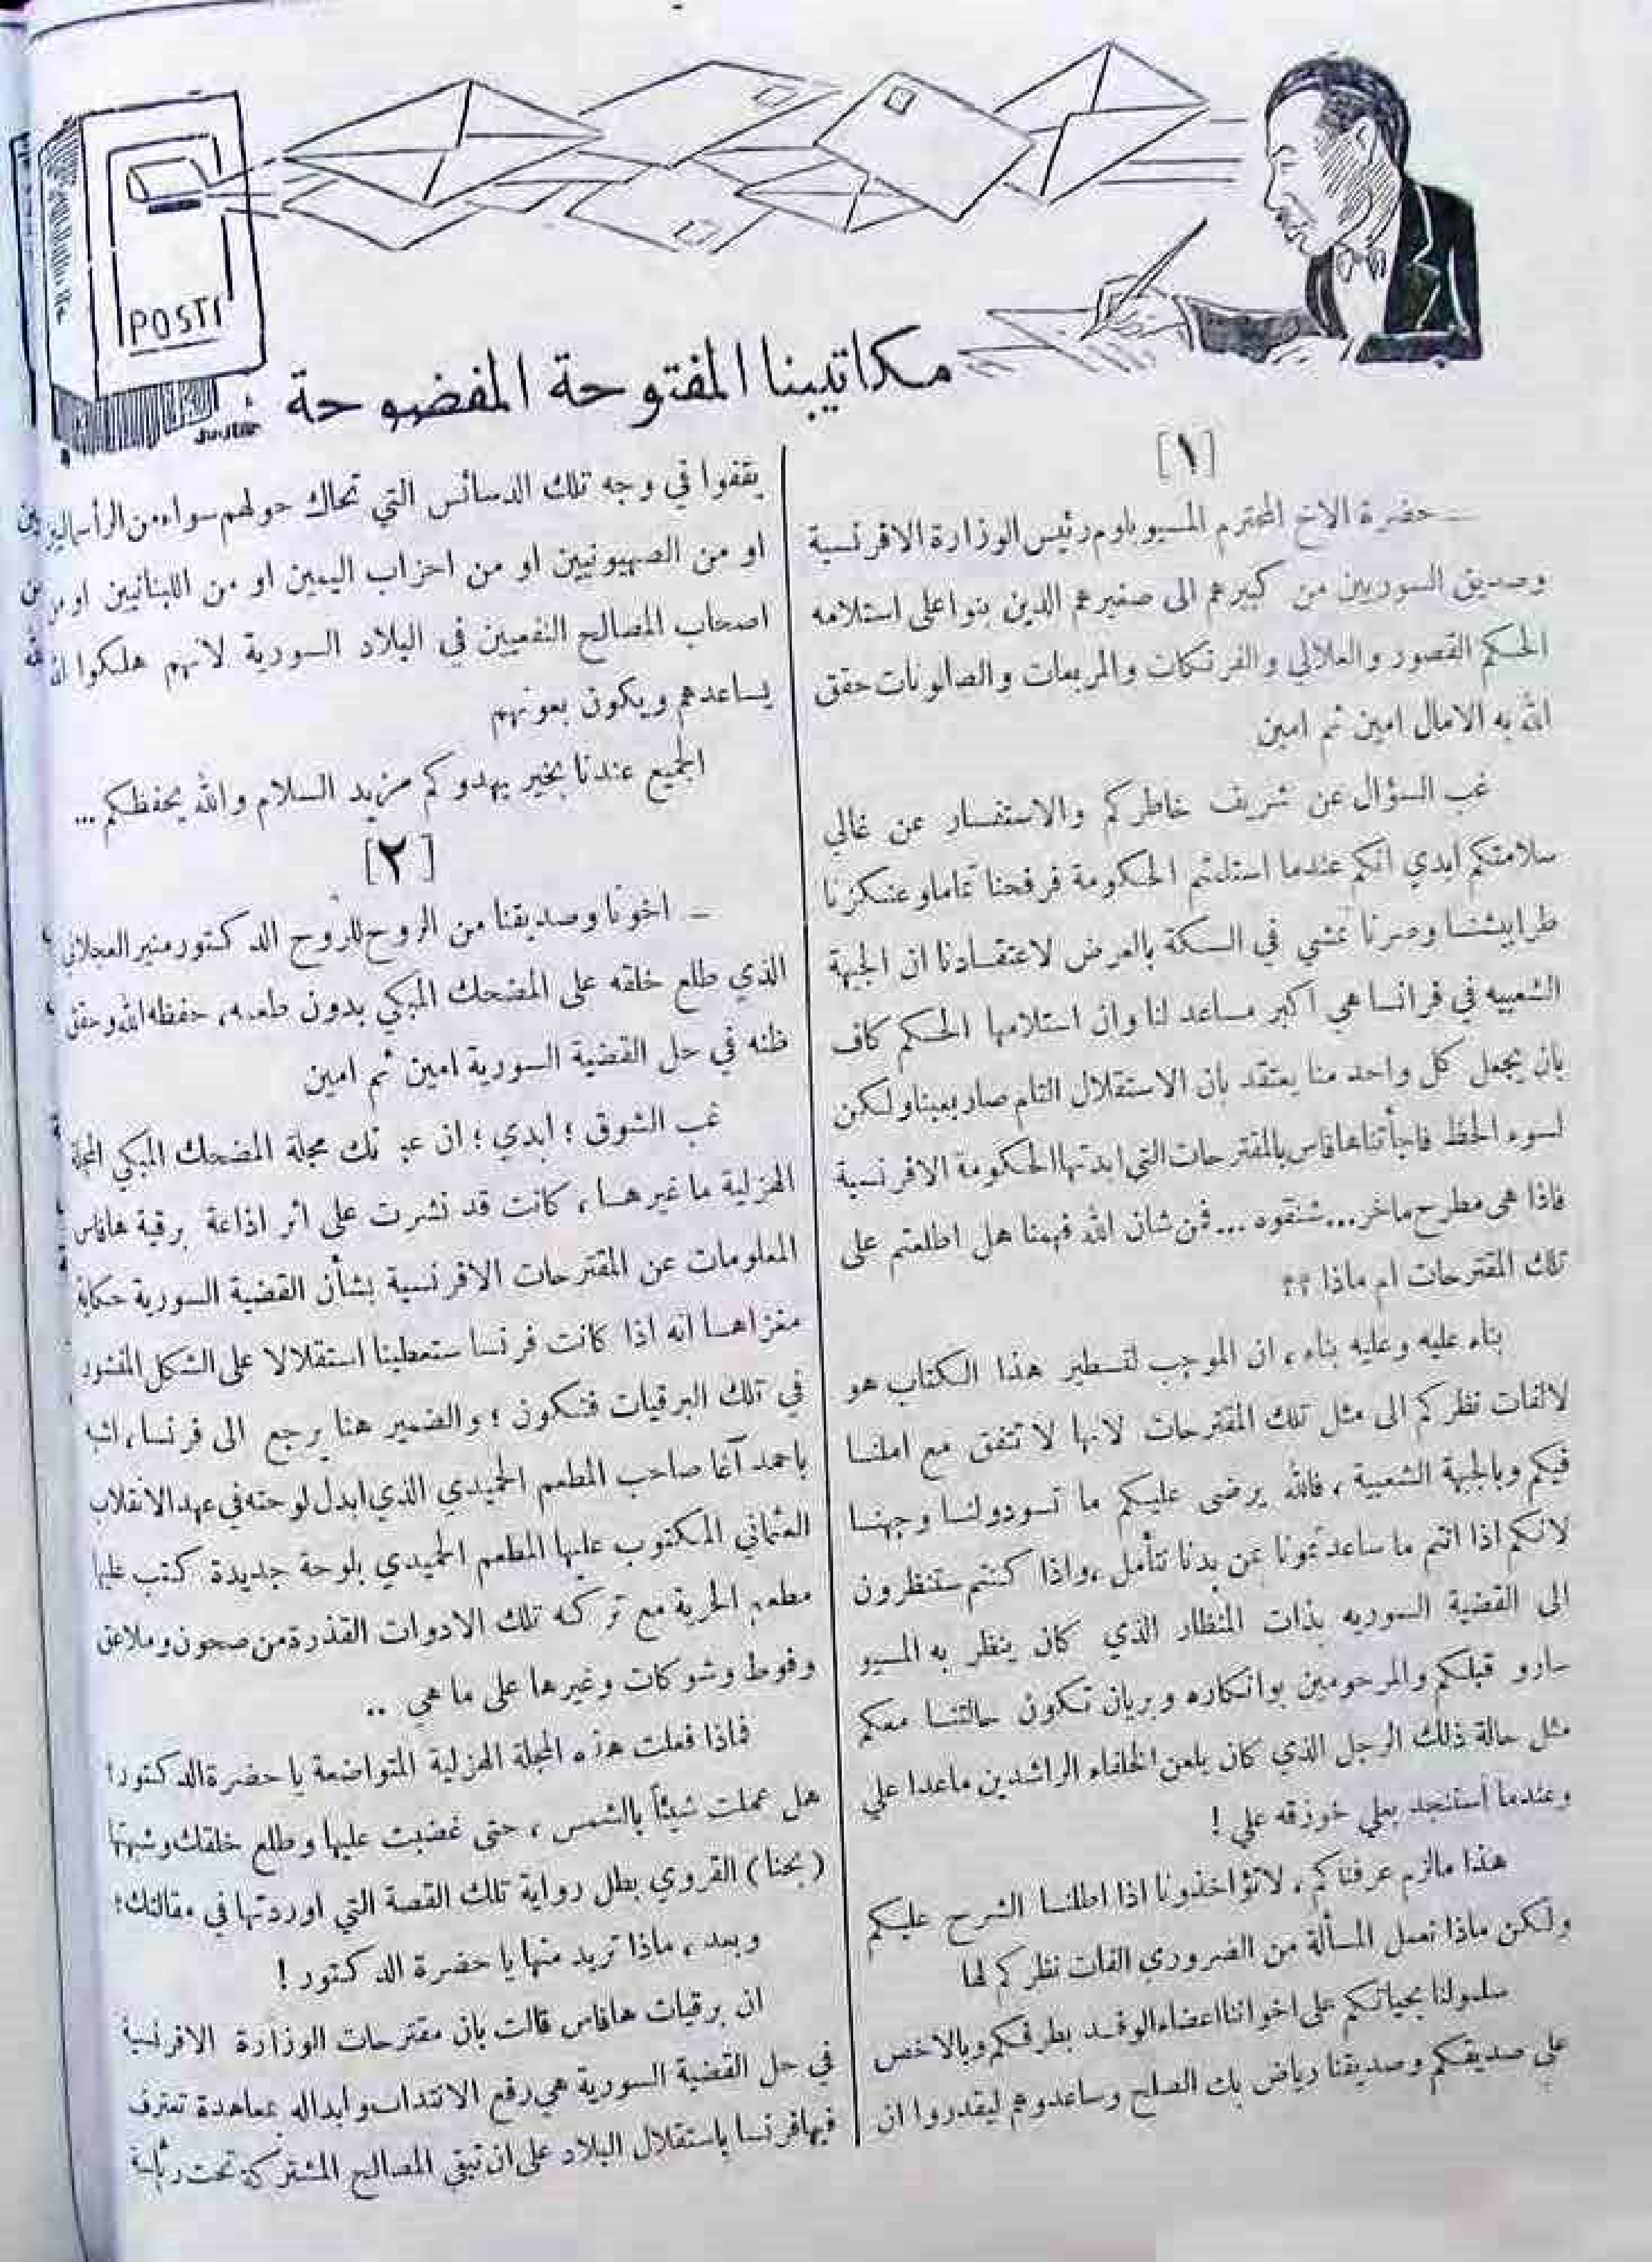 POSTI
مكاتيبنا المفتوحة المفضوحة
[١]
— حضرة الاخ المحترم المسيو بلوم رئيس الوزارة الافرنسية
وصديق السوريين من كبيرهم الى صغيرهم الذين بنوا على استلامه
الحكم القصور والعلالي والفرنكات والمربعات والصالونات حقق
الله به الامال امين ثم امين
غب السؤال عن شريف خاطركم والاستفسار عن غالي
سلامتكم ابدي انكم عندما استلمتم الحكومة فرفحنا تماما وعنكزنا
طرابيشنا وصرنا نمشي في السكة بالعرض لاعتقادنا ان الجبهة
الشعبيه في فرانسا هي اكبر مساعد لنا وان استلامها الحكم كاف
بان يجعل كل واحد منا يعتقد بان الاستقلال التام صار بعبنا ولكن
لسوء الحظ فاجأتنا هافاس بالمقترحات التي ابدتها الحكومة الافرنسية
فاذا هي مطرح ماخر... شنقوه... فمن شان الله فهمنا هل اطلعتم على
تلك المقترحات ام ماذا ؟؟
بناء عليه وعليه بناء ، ان الموجب لتسطير هذا الكتاب هو
لالفات نظركم الى مثل تلك المقترحات لانها لا تتفق مع املنا
فيكم وبالجبهة الشعبية ، فالله يرضى عليكم ما تسودولنا وجهنا
لانكم اذا انتم ما ساعدتمونا عن بدنا نتأمل ، واذا كنتم ستنظرون
الى القضية السوريه بذات المنظار الذي كان ينظر به المسيو
سارو قبلكم والمرحومين بوانكاره وبريان تكون حالتنا معكم
مثل حالة ذلك الرجل الذي كان يلعن الخلفاء الراشدين ماعدا علي
وعندما أستنجد بعلي خوزقه علي !
هذا مالزم عرفناكم ، لاتؤاخذونا اذا اطلنا الشرح عليكم
ولكن ماذا نعمل المسألة من الضروري الفات نظركم لها
سلمولنا بحياتكم على اخواننا اعضاء الوفد بطرفكم وبالاخص
على صديقكم وصديقنا رياض بك الصلح وساعدوهم ليقدروا ان
يقفوا في وجه تلك الدسائس التي تحاك حولهم سواء من الرأسماليين
او من الصهيونيين او من احزاب اليمين او من اللبنانيين او من
اصحاب المصالح النفعيين في البلاد السورية لانهم هلكوا الله
يساعدهم ويكون بعونهم
الجميع عندنا بخير يهدوكم مزيد السلام والله يحفظكم ...
[٢]
— اخونا وصديقنا من الروح للروح الدكتور منير العجلاني
الذي طلع خلقه على المضحك المبكي بدون طعمه ، حفظه الله وحقق
ظنه في حل القضية السورية امين ثم امين
غب الشوق ؛ ابدي ؛ ان عبدتك مجلة المضحك المبكي المجلة
الهزلية ما غيرها ، كانت قد نشرت على اثر اذاعة برقية هافاس
المعلومات عن المقترحات الافرنسية بشأن القضية السورية حكاية
مغزاها انه اذا كانت فرنسا ستعطينا استقلالا على الشكل المنشور
في تلك البرقيات فتكون ؛ والضمير هنا يرجع الى فرنسا ، اشبه
باحمد آغا صاحب المطعم الحميدي الذي ابدل لوحته في عهد الانقلاب
العثماني المكتوب عليها المطعم الحميدي بلوحة جديدة كتب عليها
مطعم الحرية مع تركه تلك الادوات القذرة من صحون وملاعق
وفوط وشوكات وغيرها على ما هي ..
فماذا فعلت هذه المجلة الهزلية المتواضعة يا حضرة الدكتور !
هل عملت شيئاً بالشمس ، حتى غضبت عليها وطلع خلقك وشبهتها
( بحنا ) القروي بطل رواية تلك القصة التي اوردتها في مقالتك ؛
وبعد ، ماذا تريد منها يا حضرة الدكتور !
ان برقيات هافاس قالت بان مقترحات الوزارة الافرنسية
في حل القضية السورية هي رفع الانتداب وابداله بمعاهدة تعترف
فيها فرنسا باستقلال البلاد على ان تبقى المصالح المشتركة تحت رئاسة